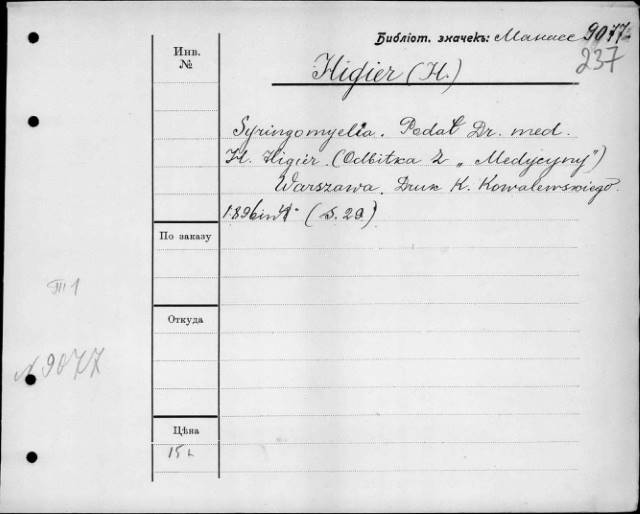 Библіот. значекъ: Манасс 9077
237
Инв.
№
Higier (H.)
Syringomyelia. Podał Dr. med.
H. Higier. (Odbitka z „Medycyny")
Warszawa. Druk K. Kowalewskiego.
1896 in 4° (S. 29.)
По заказу
III 1
Откуда
N 9077
Цѣна
15